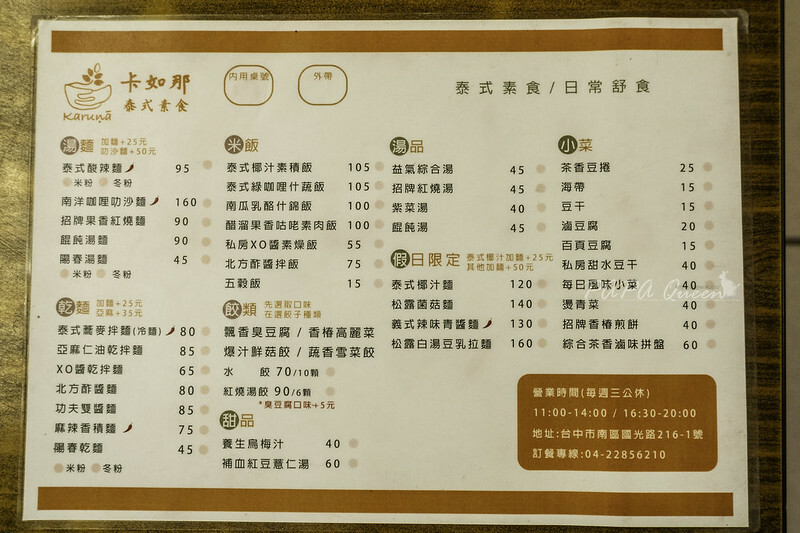 卡如那
泰式素食
Karuṇā
內用桌號
外帶
泰式素食/日常舒食
湯麵 加麵+25元
叻沙麵+50元
泰式酸辣麵 95
米粉 冬粉
南洋咖哩叻沙麵 160
招牌果香紅燒麵 90
餛飩湯麵 90
陽春湯麵 45
米粉 冬粉
乾麵 加麵+25元
亞麻+35元
泰式蕎麥拌麵(冷麵) 80
亞麻仁油乾拌麵 85
XO醬乾拌麵 85
北方酢醬麵 80
功夫雙醬麵 85
麻辣香積麵 75
陽春乾麵 45
米粉 冬粉
米飯
泰式椰汁素積飯 105
泰式綠咖哩什蔬飯 105
南瓜乳酪什錦飯 100
醋溜果香咕咾素肉飯 100
私房XO醬素燥飯 55
北方酢醬拌飯 75
五穀飯 15
餃類 先選取口味
在選餃子種類
飄香臭豆腐 / 香椿高麗菜
爆汁鮮菇餃 / 蔬香雪菜餃
水 餃 70/10顆
紅燒湯餃 90/6顆
*臭豆腐口味+5元
甜品
養生烏梅汁 40
補血紅豆薏仁湯 60
湯品
益氣綜合湯 45
招牌紅燒湯 45
紫菜湯 40
餛飩湯 45
假日限定 泰式椰汁加麵+25元
其他加麵+50元
泰式椰汁麵 120
松露菌菇麵 140
義式辣味青醬麵 130
松露白湯豆乳拉麵 160
小菜
茶香豆捲 25
海帶 15
豆干 15
滷豆腐 20
百頁豆腐 15
私房甜水豆干 40
每日品味小菜 40
燙青菜 40
招牌香椿煎餅 40
綜合茶香滷味拼盤 60
PAPA Queen
營業時間(每週三公休)
11:00-14:00 / 16:30-20:00
地址:台中市南區國光路216-1號
訂餐專線:04-22856210